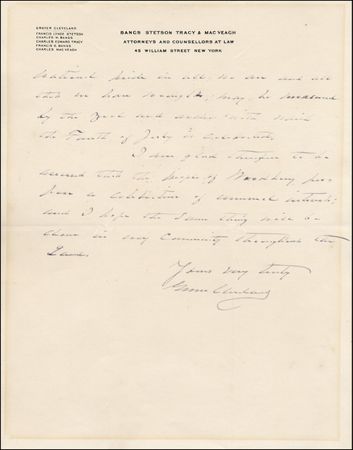 GROVER CLEVELAND
FRANCIS LYNDE STETSON
CHARLES W. BANGS
CHARLES EDWARD TRACY
FRANCIS S. BANGS
CHARLES MAC VEAGH
BANGS STETSON TRACY & MAC VEAGH
ATTORNEYS AND COUNSELLORS AT LAW
45 WILLIAM STREET NEW YORK
National pride in all we are and all
that we have wrought, may be measured
by the zeal and with which
the Fourth of July is celebrated.
I am glad therefore to be
assured that the people of Woodbury pro-
pose a celebration of unusual interest;
and I hope the same thing will be
done in every Community throughout the
Land.
Yours very truly
Grover Cleveland